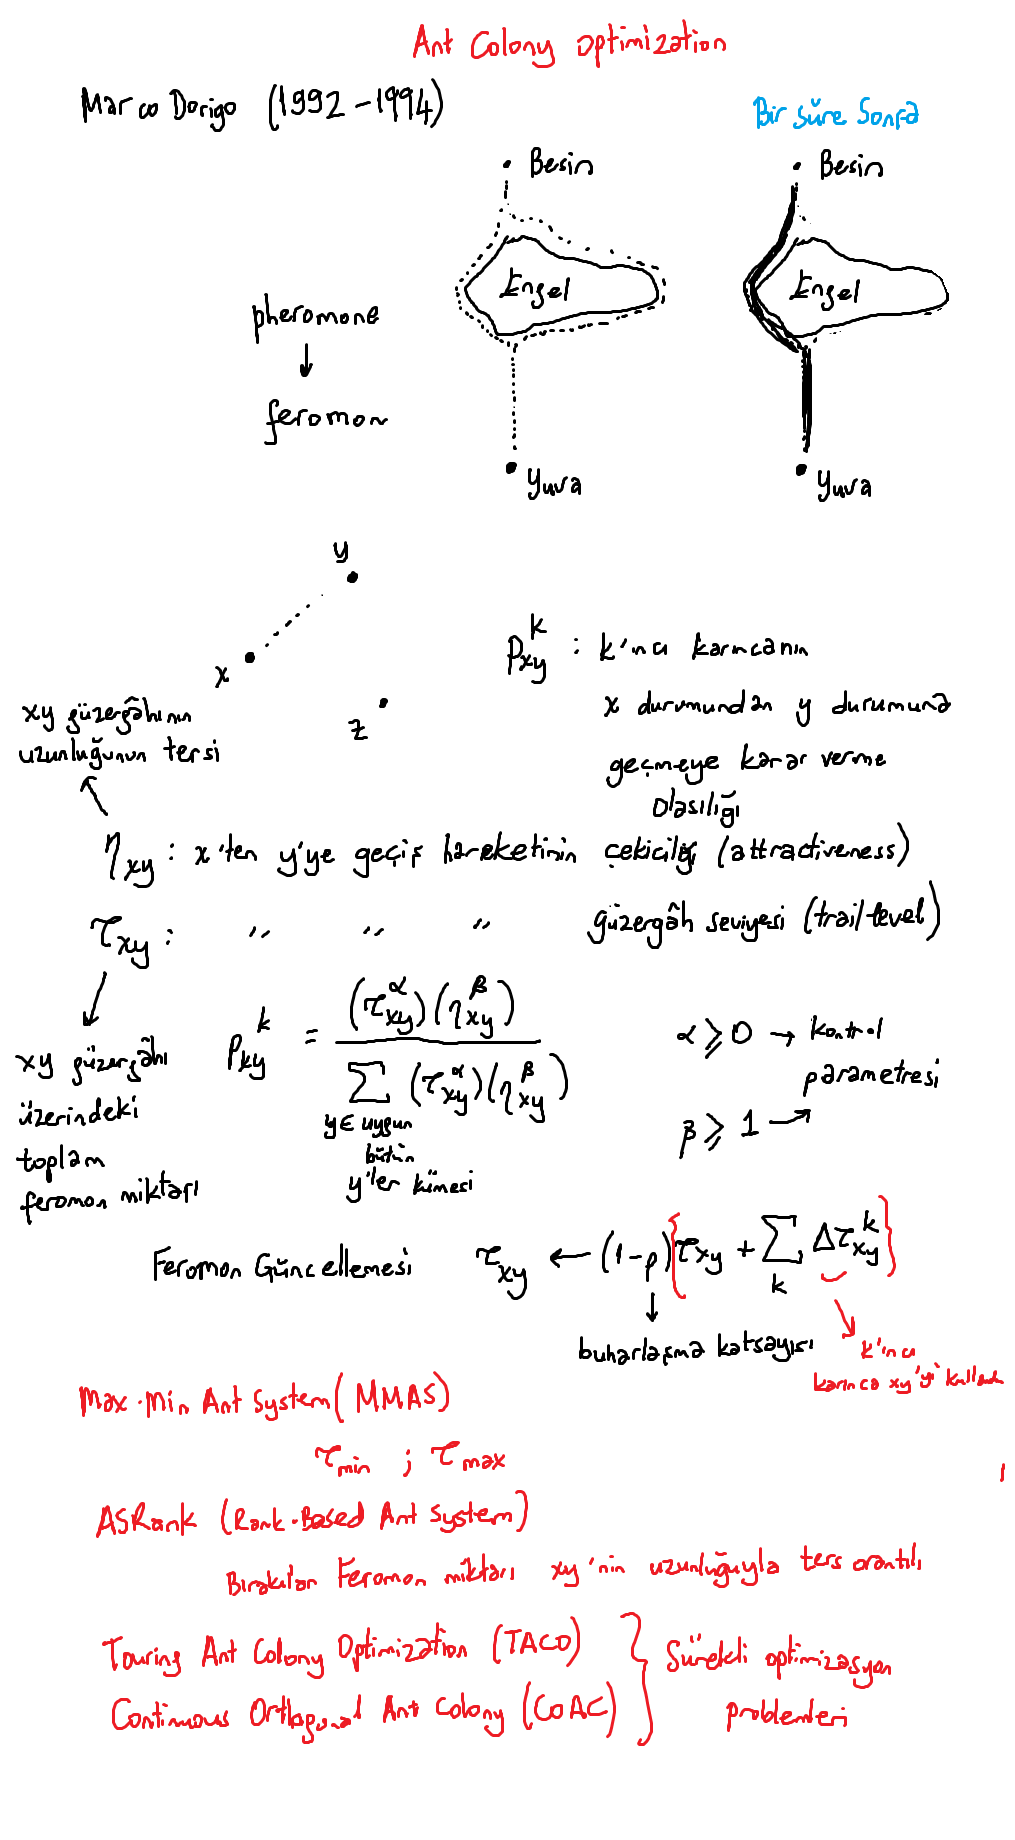 Ant Colony Optimization
Marco Dorigo (1992-1994)
Bir Süre Sonra
Besin
Besin
Engel
Engel
pheromone
↓
feromon
Yuva
Yuva
y
x
z
P_xy^k : k'ıncı karıncanın
x durumundan y durumuna
geçmeye karar verme
olasılığı
xy güzergâhının
uzunluğunun tersi
η_xy : x'ten y'ye geçiş hareketinin çekiciliği (attractiveness)
τ_xy : " " " güzergâh seviyesi (trail level)
xy güzergâhı
üzerindeki
toplam
feromon miktarı
P_xy^k = (τ_xy^α)(η_xy^β) / Σ (τ_xy^α)(η_xy^β)
y ∈ uygun
bütün
y'ler kümesi
α ⩾ 0 → kontrol
parametresi
β ⩾ 1 →
Feromon Güncellemesi τ_xy ← (1-ρ){τ_xy + Σ_k Δτ_xy^k}
buharlaşma katsayısı
k'ıncı
karınca xy'yi
Max-Min Ant System (MMAS)
τ_min ; τ_max
ASRank (Rank-Based Ant System)
Bırakılan Feromon miktarı xy'nin uzunluğuyla ters orantılı
Touring Ant Colony Optimization (TACO)
Continuous Orthogonal Ant Colony (COAC)
Sürekli optimizasyon
problemleri